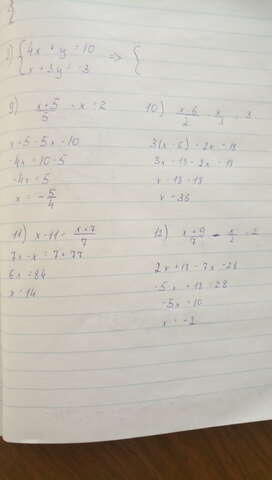 1) { 4x + y = 10 => {
x + 3y = -3
9) (x+5)/5 - x = 2
x+5-5x=10
-4x=10-5
-4x=5
x = -5/4
10) (x-6)/2 - x/3 = 3
3(x-6)-2x=18
3x-18-2x=18
x-18=18
x=36
11) x-11 = (x+7)/7
7x-x=7+77
6x=84
x=14
12) (x+9)/7 - x/2 = 2
2x+18-7x=28
-5x+18=28
-5x=10